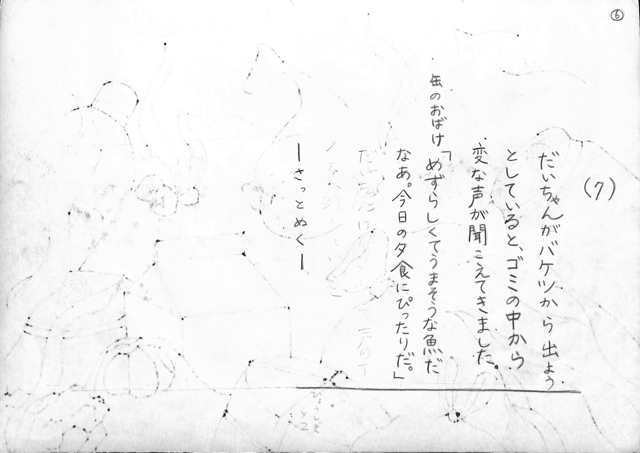 ⑥
(7)
だいちゃんがバケツから出よう
としていると、ゴミの中から
変な声が聞こえてきました。
缶のおばけ「めずらしくてうまそうな魚だ
なあ。今日の夕食にぴったりだ。」
ーさっとぬくー
ひょうしぎ
×2